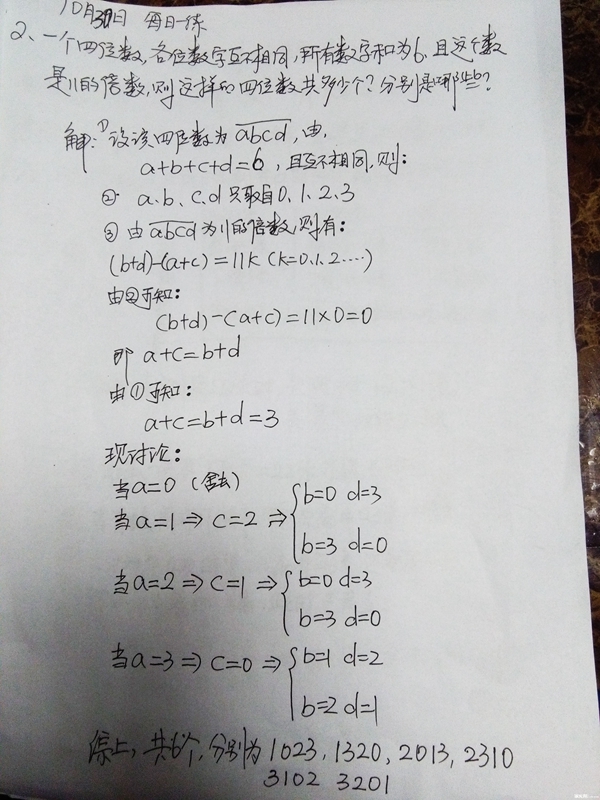 10月30日 每日一练
2、一个四位数,各位数字互不相同,所有数字和为6,且这个数
是11的倍数,则这样的四位数共多少个?分别是哪些?
解:①设该四位数为abcd,由,
a+b+c+d=6,且互不相同,则:
② a.b、c.d 只取自0、1、2、3
③ 由abcd为11的倍数,则有:
(b+d)-(a+c)=11k (k=0.1.2····)
由②可知:
(b+d)-(a+c)=11×0=0
即 a+c=b+d
由①可知:
a+c=b+d=3
现讨论:
当a=0 (舍去)
当a=1⇒c=2 ⇒ b=0 d=3
b=3 d=0
当a=2⇒c=1 ⇒ b=0 d=3
b=3 d=0
当a=3⇒c=0 ⇒ b=1 d=2
b=2 d=1
综上,共6个,分别为1023,1320,2013,2310
3102 3201